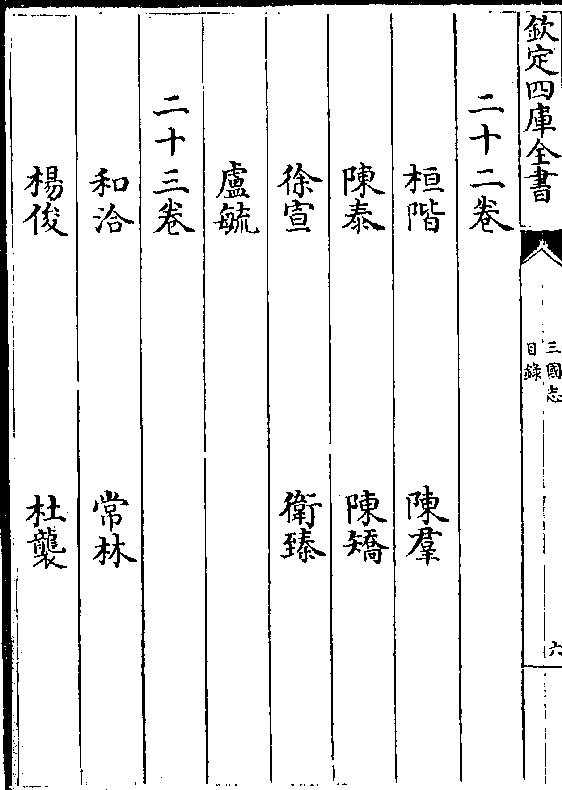 欽定四庫全書
三國志
目錄
六
二十二卷
桓階 陳羣
陳泰 陳矯
徐宣 衛臻
盧毓
二十三卷
和洽 常林
楊俊 杜襲